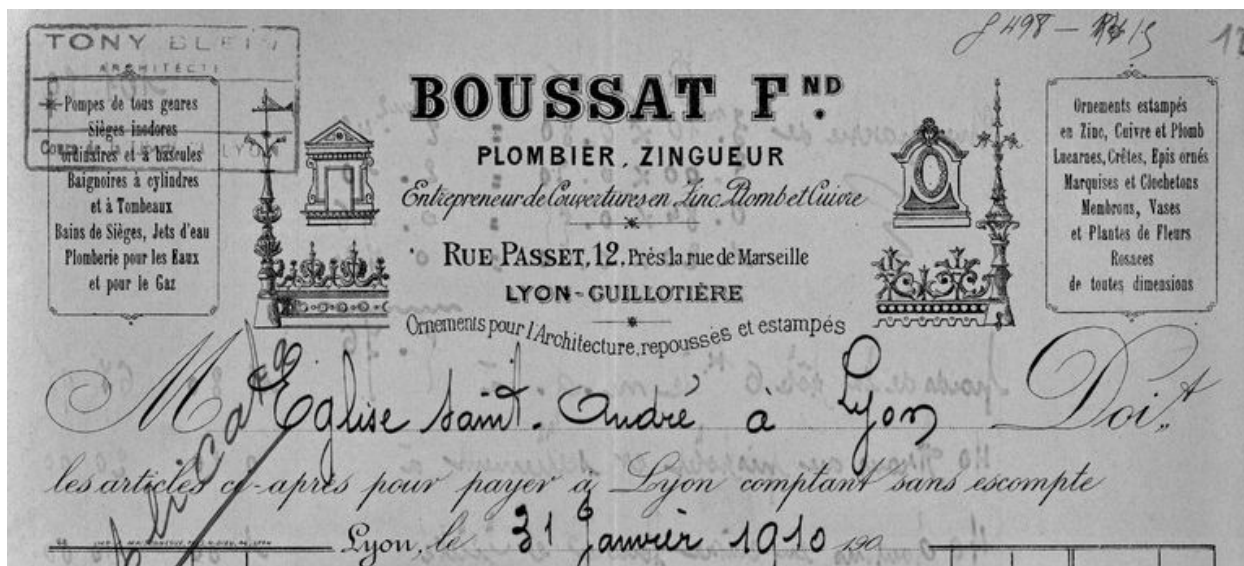 TONY BLEIN
ARCHITECTE
Cours de la Liberté, LYON
Pompes de tous genres
Sièges inodores
ordinaires et à bascules
Baignoires à cylindres
et à Tombeaux
Bains de Sièges, Jets d'eau
Plomberie pour les Eaux
et pour le Gaz
BOUSSAT FND.
PLOMBIER, ZINGUEUR
Entrepreneur de Couvertures en Zinc, Plomb et Cuivre
RUE PASSET, 12, Près la rue de Marseille
LYON-GUILLOTIÈRE
Ornements pour l'Architecture, repoussés et estampés
Ornements estampés
en Zinc, Cuivre et Plomb
Lucarnes, Crêtes, Epis ornés
Marquises et Clochetons
Membrons, Vases
et Plantes de Fleurs
Rosaces
de toutes dimensions
M Eglise Saint-André à Lyon Doit
les articles ci-après pour payer à Lyon comptant sans escompte
Lyon, le 31 Janvier 1910 190